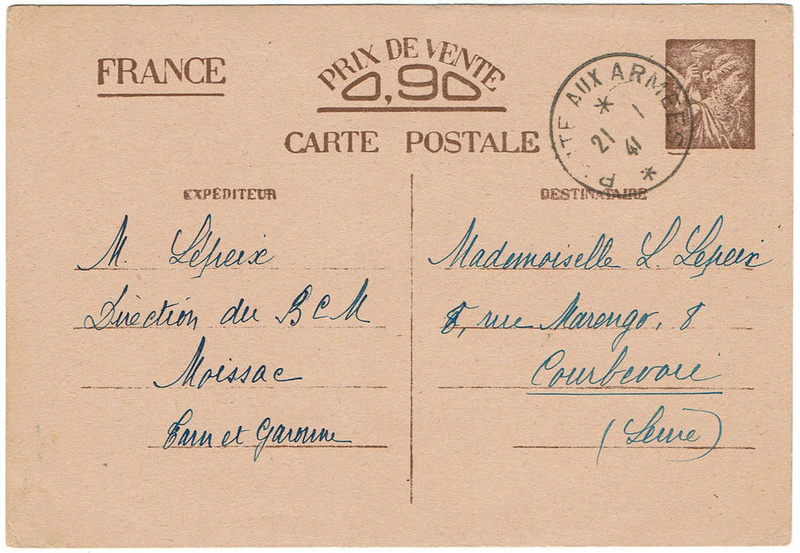 FRANCE
PRIX DE VENTE
0,90
CARTE POSTALE
POSTE AUX ARMÉES
* 21 - 1 41 *
EXPÉDITEUR
M. Lépeix
Direction du B C M
Moissac
Tarn et Garonne
DESTINATAIRE
Mademoiselle L Lepeix
8, rue Marengo, 8
Courbevoie
(Seine)